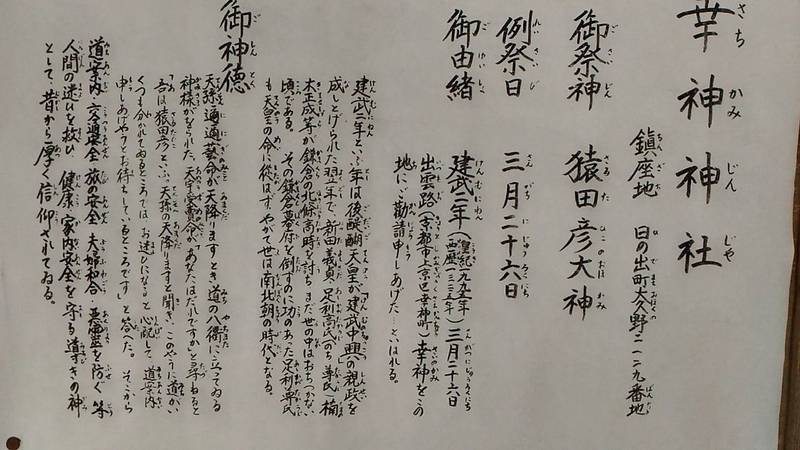 幸神神社
鎮座地 日の出町大久野二一二九番地
御祭神 猿田彦大神
例祭日 三月二十六日
御由緒 建武二年(皇紀一九九五年)(西暦一三三五年)三月二十六日
出雲路(京都市上京区幸神町)幸神をこの
地にご勧請申しあげたといはれる。
建武二年といふ年は後醍醐天皇が建武中興の親政を
成しとげられた翌年で、新田義貞・足利高氏(のち尊氏)楠
木正成等が鎌倉の北條高時を討ちまだ世の中はおちつかない
頃である。その鎌倉幕府を倒すのに功のあった足利尊氏
も天皇の命に従はず、やがて世は南北朝の時代となる。
御神徳
天孫邇邇藝命が天降りますとき道の八衢に立ってゐる
神様がをられた。天宇受賣命が「あなたはだれですか」と尋ねると
「吾は猿田彦といふ。天孫の天降りますと聞き、このやうに道がい
くつも分かれてゐるところでは、お迷ひになると心配して、道案内
申しあげやうとお待ちしているところです」と答へた。そこから
道案内・交通安全・旅の安全・夫婦和合・悪霊を防ぐ等
人間の迷ひを救ひ、健康・家内安全を守る導きの神
として、昔から厚く信仰されてゐる。